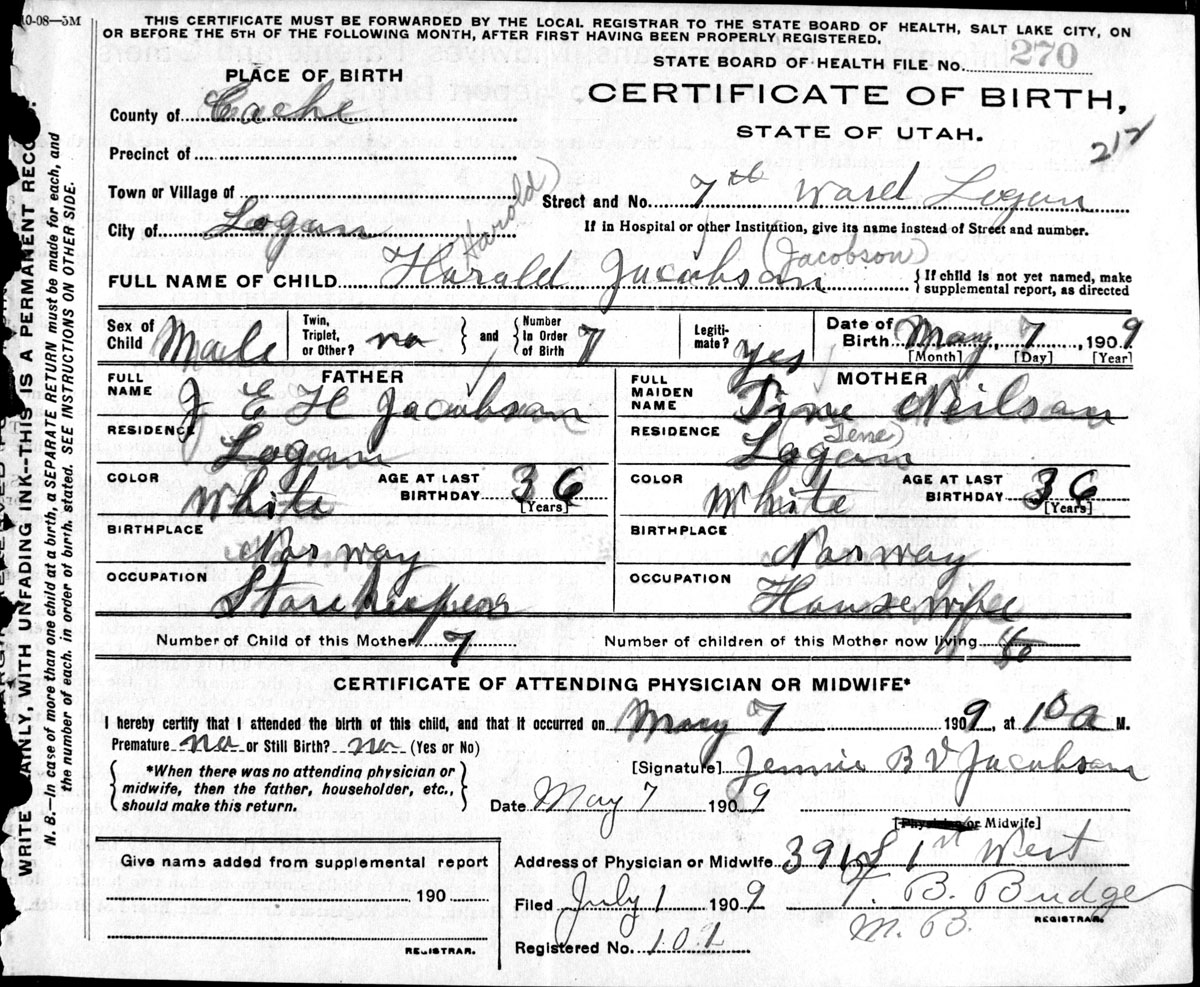 10-08—5M
THIS CERTIFICATE MUST BE FORWARDED BY THE LOCAL REGISTRAR TO THE STATE BOARD OF HEALTH, SALT LAKE CITY, ON
OR BEFORE THE 5TH OF THE FOLLOWING MONTH, AFTER FIRST HAVING BEEN PROPERLY REGISTERED.
STATE BOARD OF HEALTH FILE NO. 270
PLACE OF BIRTH
CERTIFICATE OF BIRTH,
STATE OF UTAH.
212
County of Cache
Precinct of
Town or Village of
Street and No. 7th Ward Logan
City of Logan
If in Hospital or other Institution, give its name instead of Street and number.
(Harold) (Jacobson)
FULL NAME OF CHILD Harald Jacobsan {If child is not yet named, make
supplemental report, as directed
Sex of Child Male
Twin, Triplet, or Other? no } and { Number In Order of Birth 7
Legiti-mate? yes
Date of Birth May 7, 1909
[Month] [Day] [Year]
FATHER
FULL NAME J E H Jacobsan
RESIDENCE Logan
COLOR White AGE AT LAST BIRTHDAY 36
[Years]
BIRTHPLACE Norway
OCCUPATION Storekeeper
MOTHER
FULL MAIDEN NAME Tine Neilsan
(Tene)
RESIDENCE Logan
COLOR White AGE AT LAST BIRTHDAY 36
[Years]
BIRTHPLACE Norway
OCCUPATION Housewife
Number of Child of this Mother 7
Number of children of this Mother now living
CERTIFICATE OF ATTENDING PHYSICIAN OR MIDWIFE*
I hereby certify that I attended the birth of this child, and that it occurred on May 7 1909, at 10 a M.
Premature no or Still Birth? no (Yes or No)
{*When there was no attending physician or
midwife, then the father, householder, etc.,
should make this return.}
[Signature] Jennie B V Jacobsan
Date May 7 1909
[Physician or Midwife]
Give name added from supplemental report
190
REGISTRAR.
Address of Physician or Midwife 391 S 1st West
Filed July 1 1909 F. B. Budge
M. B.
REGISTRAR.
Registered No. 102
WRITE PLAINLY, WITH UNFADING INK--THIS IS A PERMANENT RECO
N. B.—In case of more than one child at a birth, a SEPARATE RETURN must be made for each, and
the number of each, in order of birth, stated. SEE INSTRUCTIONS ON OTHER SIDE.